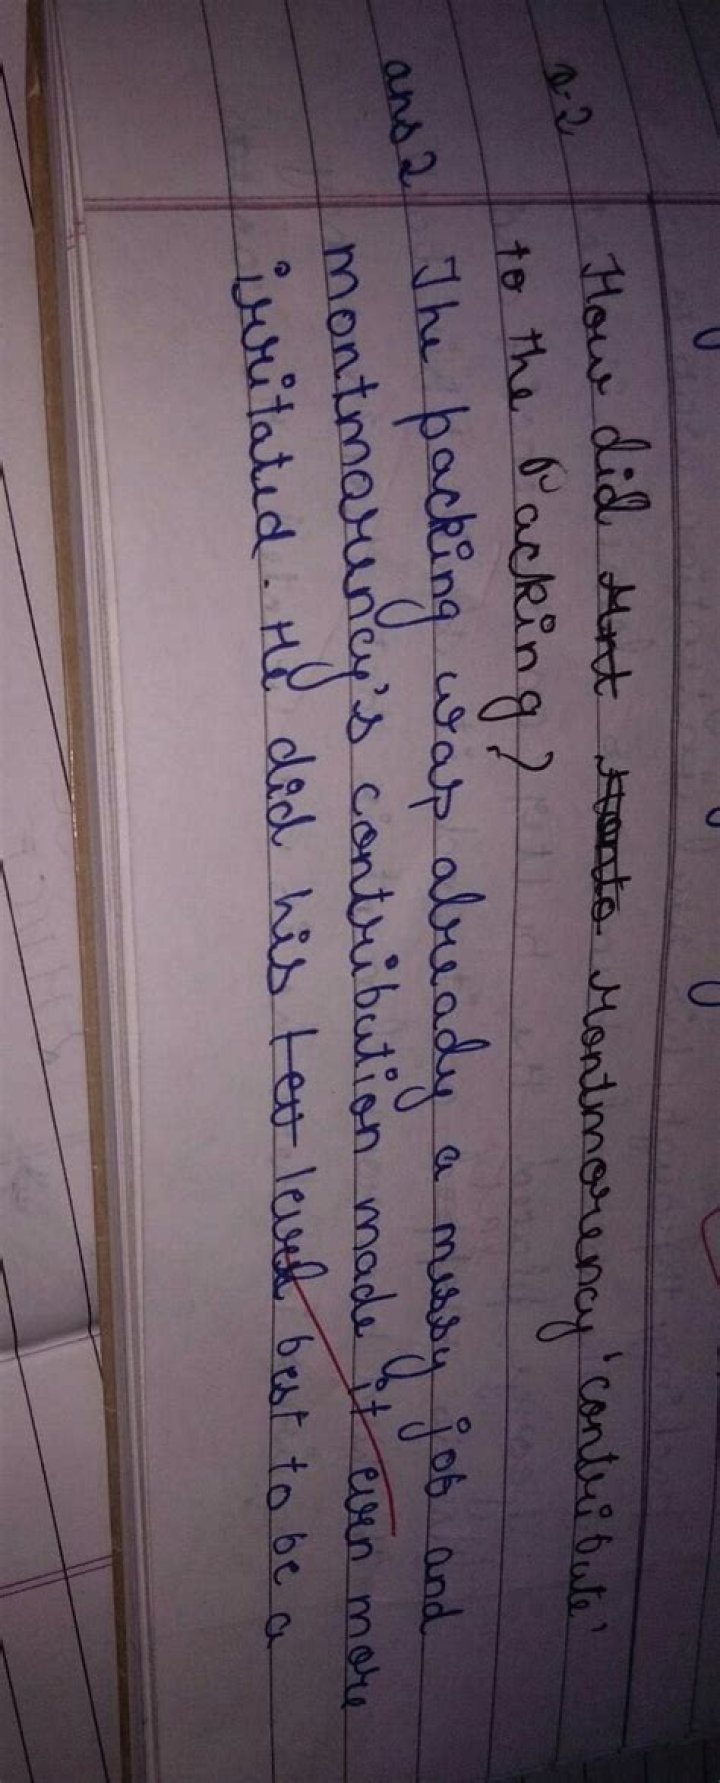 Q-2 How did Montmorency 'contribute'
to the Packing?
ans 2 The packing was already a messy job and
montmorency's contribution made it even more
irritated. He did his level best to be a